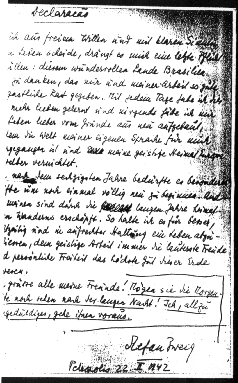 Declaração
ich aus freiem Willen und mit klaren Sinnen
Leben scheide, drängt es mich eine letzte
füllen: diesem wundervollen Lande Brasilien
zu danken, das mir und meiner Arbeit so gute
gastliche Rast gegeben. Mit jedem Tage habe ich
mehr lieben gelernt und nirgends hätte ich mir
Leben lieber vom Grunde aus neu aufgebaut,
die Welt meiner eigenen Sprache für mich
gegangen ist und meine geistige Heimat Europa
selber vernichtet.
nach dem sechzigsten Jahre bedürfte es besonderer
um noch einmal völlig neu zu beginnen. Und
meinen sind durch die langen Jahre heimat
Wanderns erschöpft. So halte ich es für besser,
und in aufrechter Haltung ein Leben
dem geistige Arbeit immer die lauterste Freude
persönliche Freiheit das höchste Gut dieser Erde
grüsse alle meine Freunde! Mögen sie die Morgen
noch sehen nach der langen Nacht! Ich, allzu
geduldiger, gehe ihnen voraus.
Stefan Zweig
Petropolis 22. II 1942